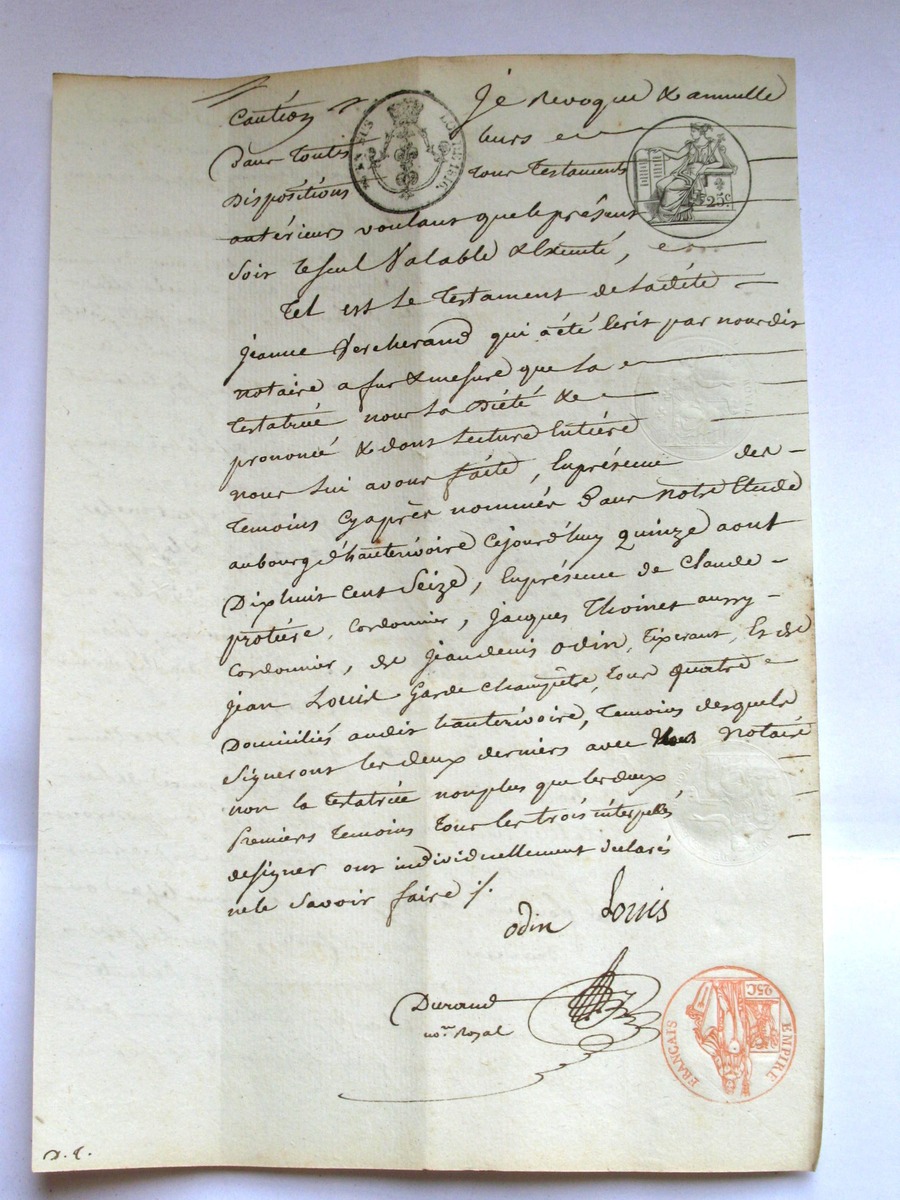 Caution Je revoque & annulle
Dans toutes leurs
Dispositions tous Testaments
antérieurs voulant que le présent
soit le seul Valable & Executé,
Tel est le Testament de ladite
jeanne Vercherand qui a été Ecrit par nous dit
notaire a fur & mesure que la
testatrice nous la Dicté &
prononcé & dont Lecture Entiere
nous lui avons faite, En présence des
Temoins Cy après nommés Dans notre Etude
au bourg d'hauterivoire Cejourd'huy quinze aout
Dix huit Cent Seize, En présence de Claude
protiere, Cordonnier, jacques Thoinet aussy
Cordonnier, de jean denis odin, Tixerant, Et de
jean Louis Garde Champetre, tous quatre
Domiciliés audit hauterivoire, Temoins desquels
Signeront les deux derniers avec Nous notaire
non la testatrice nonplus que les deux
Premiers temoins tous les trois interpellés
de signer ont individuellement declarés
ne le Savoir faire ./.
odin Louis
Durand
no.re Royal
D. E.
LOIRE 1816.
25c.
EMPIRE
FRANÇAIS
25C